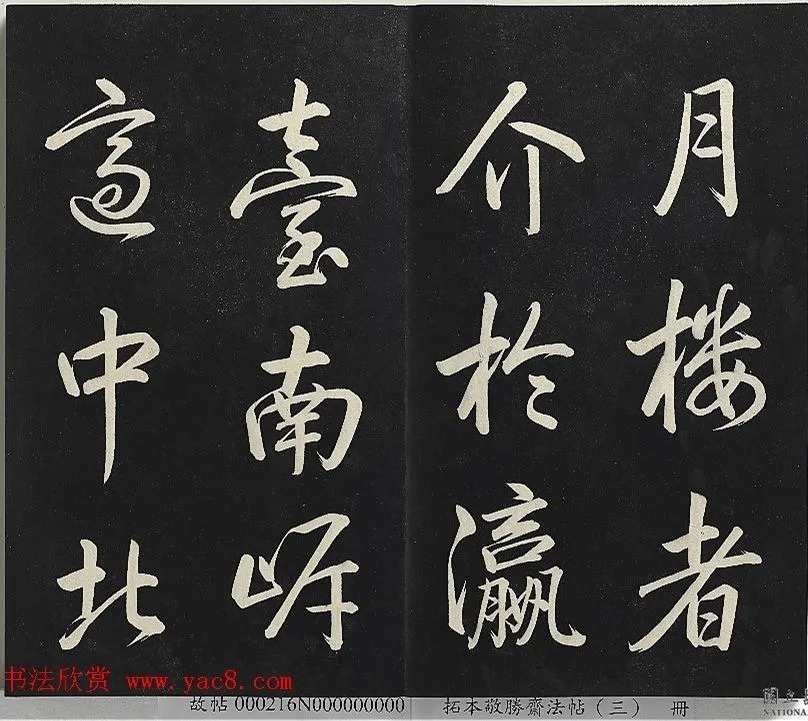 月楼者
介於瀛
臺南岸
適中北
书法欣赏 www.yac8.com
故帖 000216N000000000 拓本敬勝齋法帖（三） 冊
國立
NATIONA